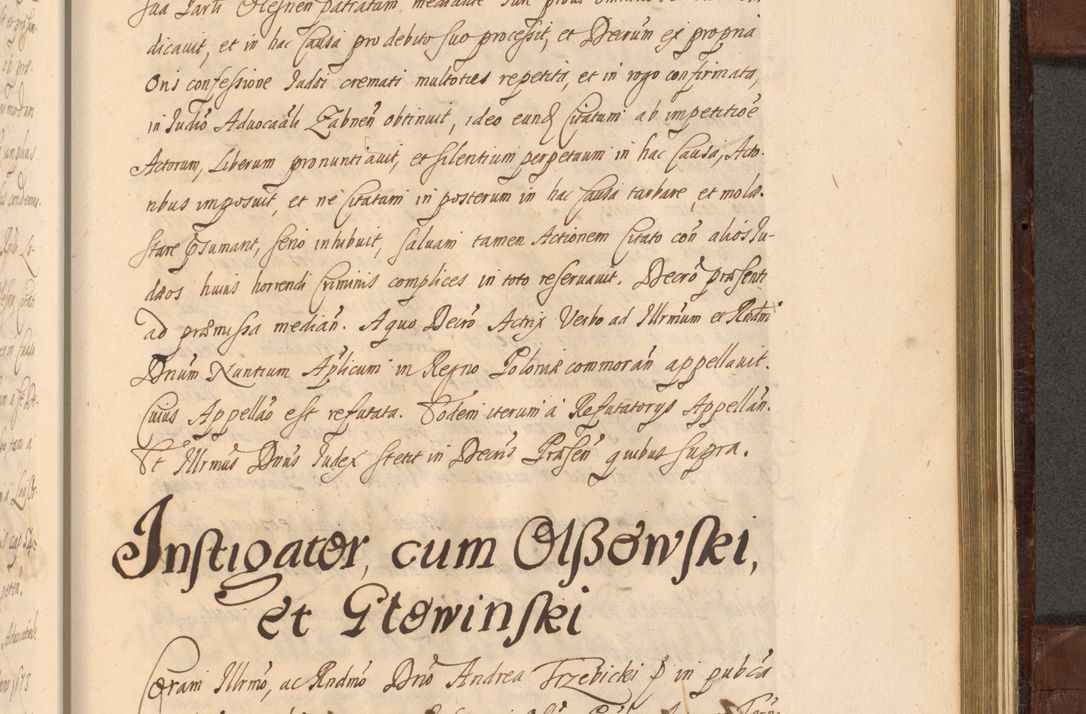 dicavit, et in hac Causa pro debito suo processit, et Decrum ex propria
Oris confessione Iudæi cremati multoties repetita, et in rogo confirmata,
in Iudio Advocaali Zabnen obtinuit, ideo eund Citatum ab impetitioe
Actorum, Liberum pronuntiavit, et silentium perpetuum in hac Causa, Acto-
ribus imposuit, et ne Citatum in posterum in hac Causa turbare, et mole-
stare præsumant, serio inhibuit, salvam tamen Actionem Citato con alios Iu-
dæos huius horrendi Criminis complices in toto reservavit. Decro præsenti
ad præmissa median. A quo Decro Actrix Verbo ad Illrmum et Rndm
Dnum Nuntium Aplicum in Regno Poloniæ commoran appellavit.
Cuius Appellao est refutata. Eodem iterum à Refutatorys Appellan.
Et Illrmus Dnus Iudex stetit in Decris Præsen quibus supra.
Instigator, cum Olszowski,
et Głowinski
Coram Illrmo, ac Rndmo Dno Andrea Trzebicki in pubca